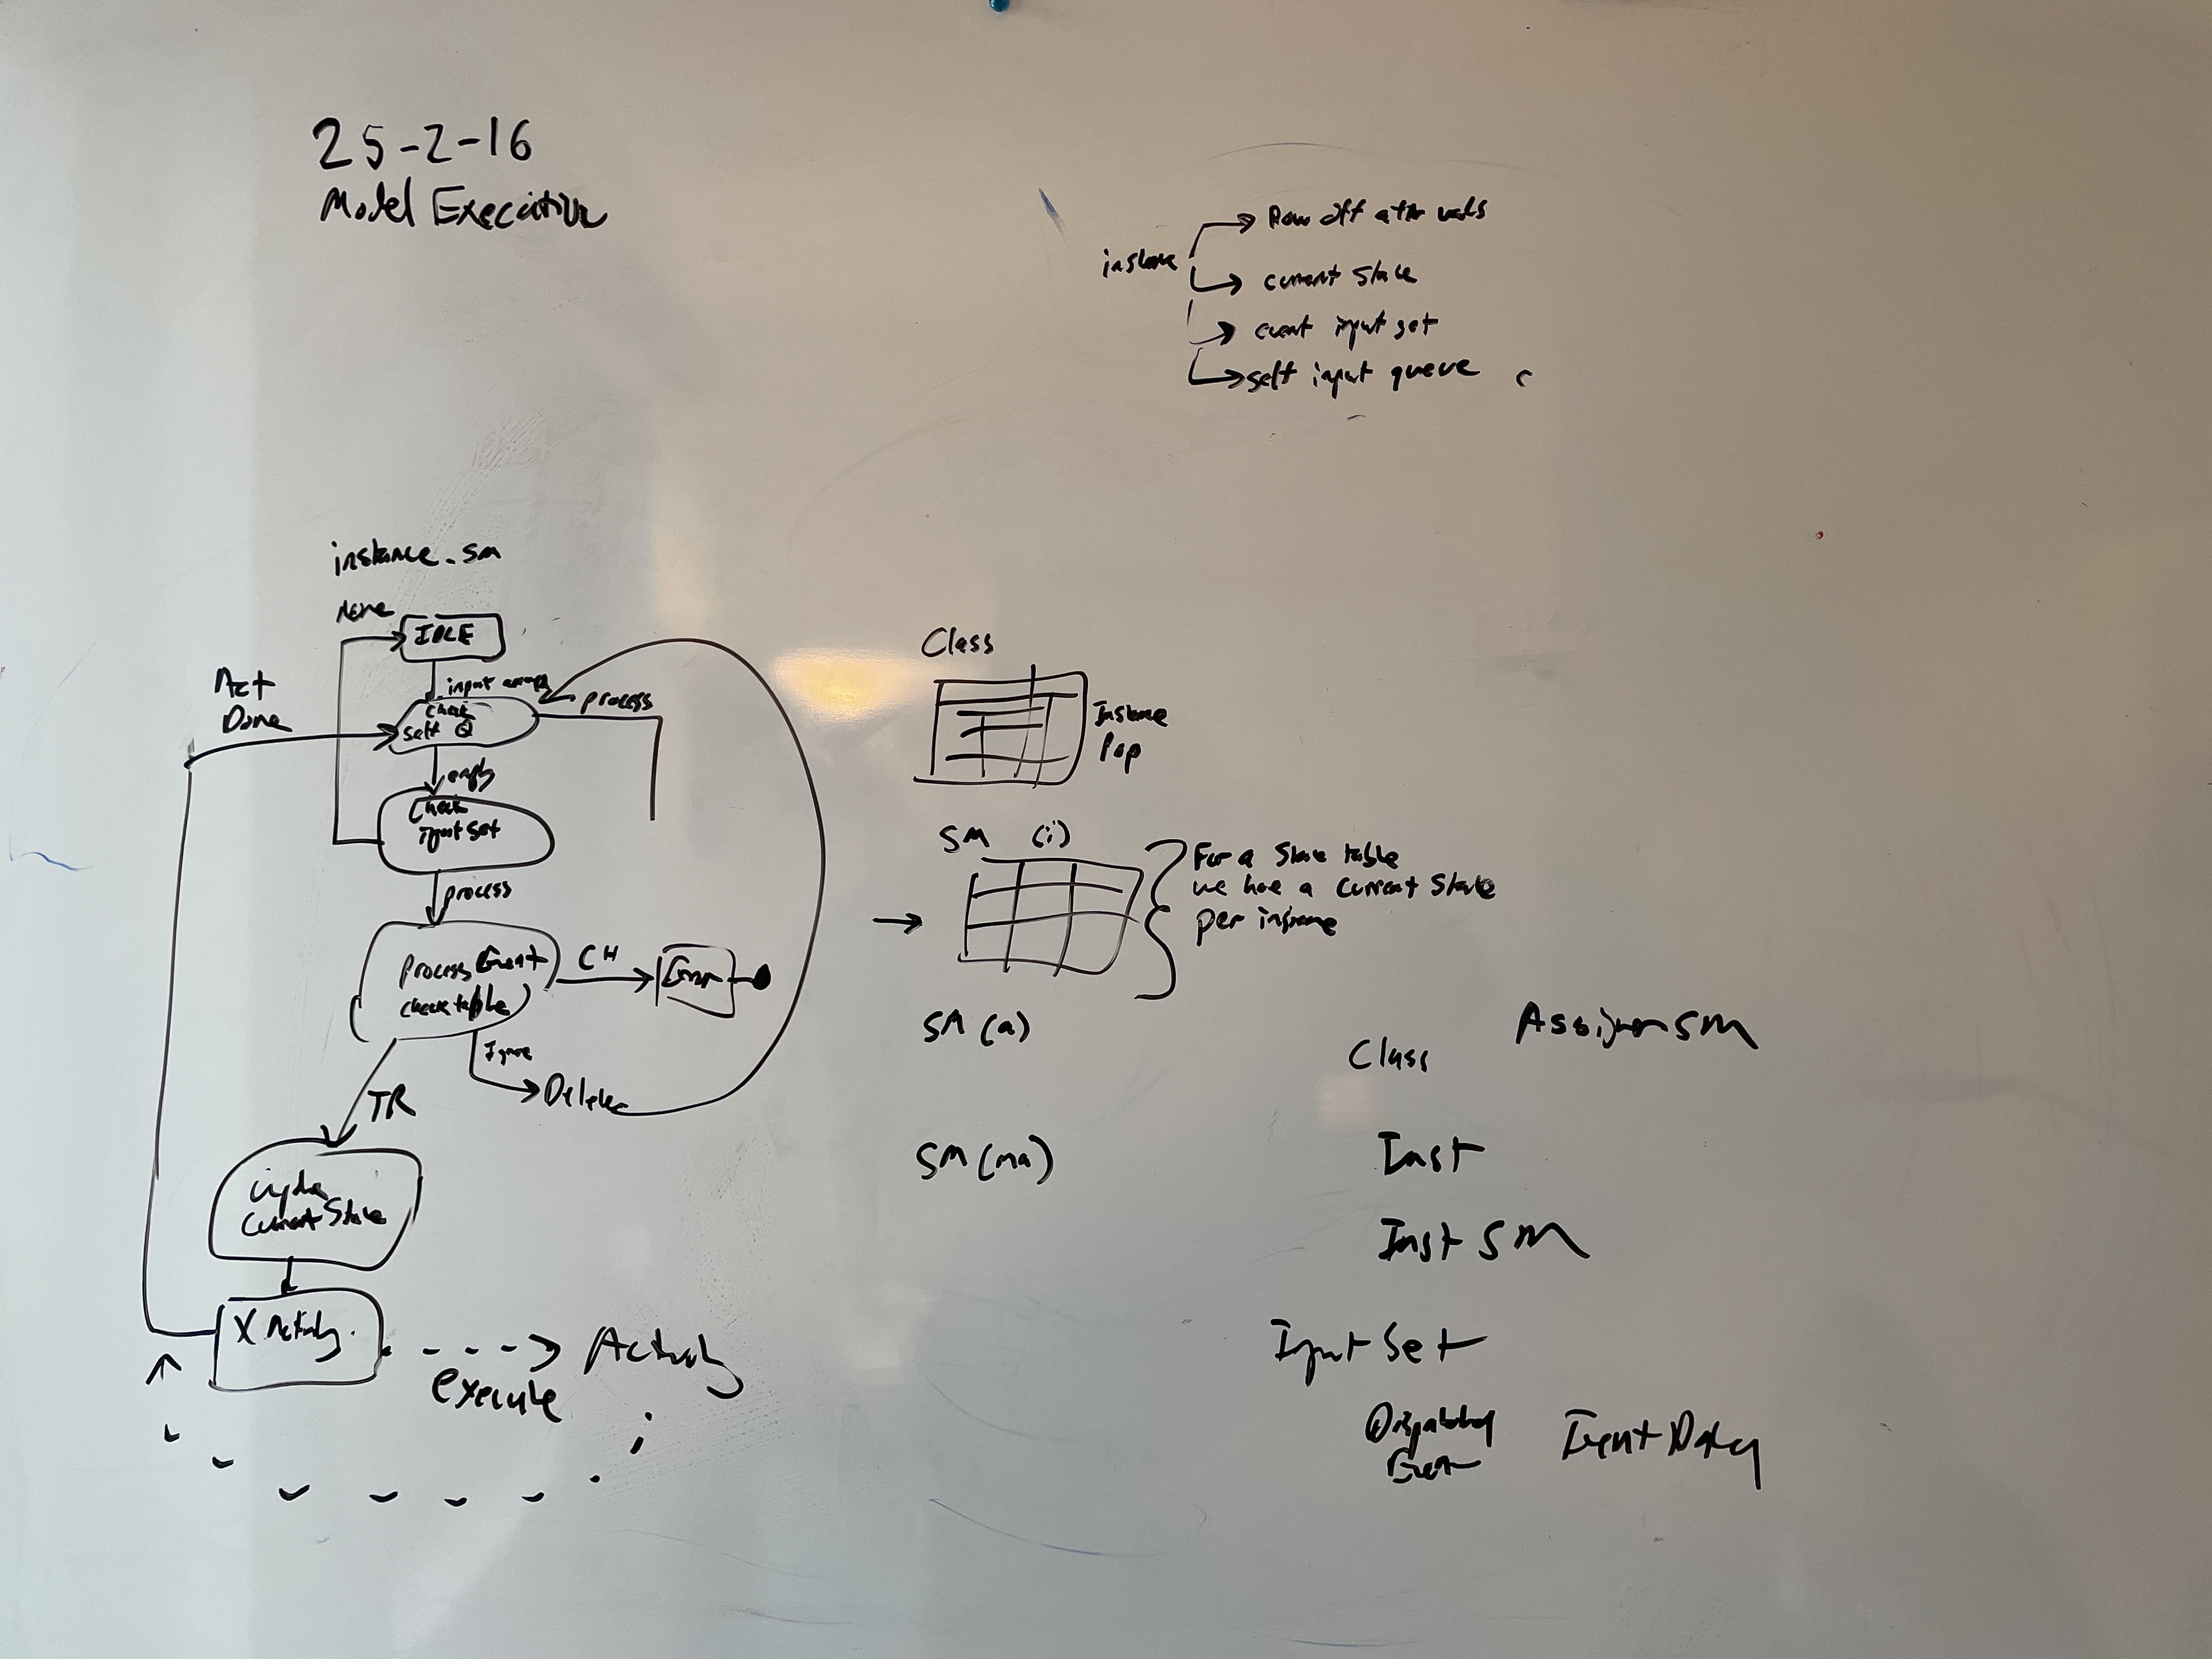 25-2-16
Model Execution
instance
Row off attr vals
current state
event input set
self input queue
instance.sm
None
IDLE
input
Act
Done
check
self Q
process
empty
check
input set
process
process Event
check table
CH
Error
Ignore
Delete
TR
Update
Current State
X Activity
execute
Activity
Class
Instance
Pop
SM (i)
For a State table
we have a current State
per instance
SM (a)
SM (ma)
Class
Assigner SM
Inst
Inst SM
Input Set
Dispatched
Event